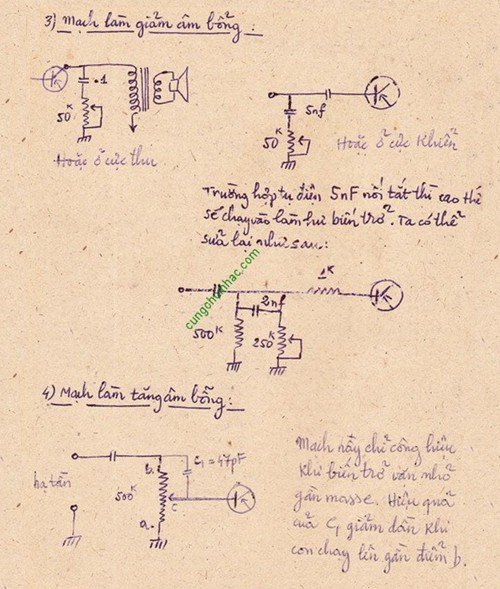 3) Mạch làm giảm âm bổng :
.1
50K
5nf
50K
Hoặc ở cực thu
Hoặc ở cực Khiển
Trường hợp tụ điện 5nF nối tắt thì cao thế
sẽ chạy vào làm hư biến trở. Ta có thể
sửa lại như sau:
cungchoinhac.com
1K
2nf
500K
250K
4) Mạch làm tăng âm bổng:
hạ tần
b.
C1 = 47pF
500K
c
a.
Mạch nầy chỉ công hiệu
Khi biến trở vặn nhỏ
gần masse. Hiệu quả
của C1 giảm dần khi
con chạy lên gần điểm b.